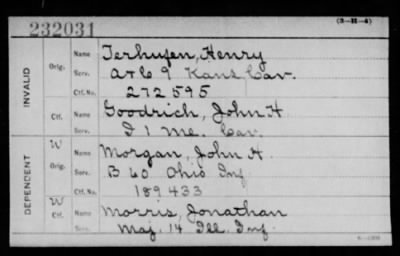 232031
(3-H-4)
INVALID
Orig.
Name Terhufen, Henry
Serv. A+C 9 Kans Cav.
Ctf. No. 272595
Ctf.
Name Goodrich, John H
Serv. I 1 Me. Cav.
DEPENDENT
W
Orig.
Name Morgan, John H.
Serv. B 60 Ohio Inf
Ctf. No. 189433
W
Ctf.
Name Morris, Jonathan
Serv. Maj. 14 Ill. Inf.